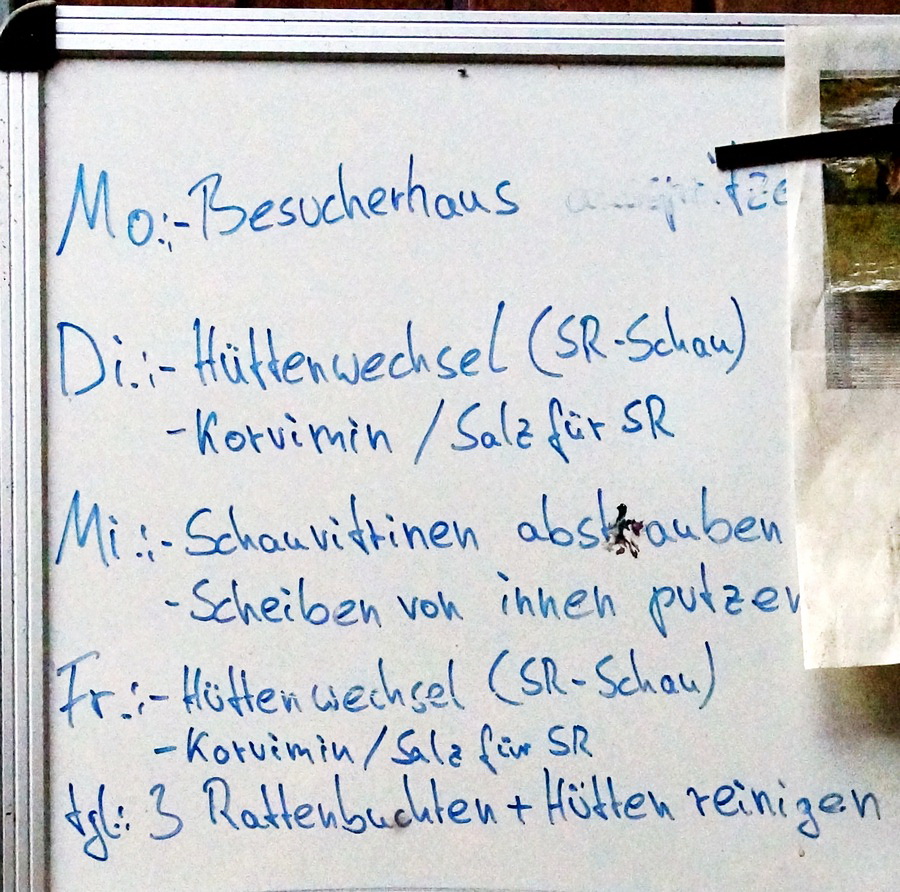 Mo.:-Besucherhaus
Di.:-Hüttenwechsel (SR-Schau)
-Korvimin / Salz für SR
Mi.:-Schauvitrinen abstauben
-Scheiben von innen putzen
Fr.:-Hüttenwechsel (SR-Schau)
-Korvimin / Salz für SR
tgl.: 3 Rattenbuchten + Hütten reinigen